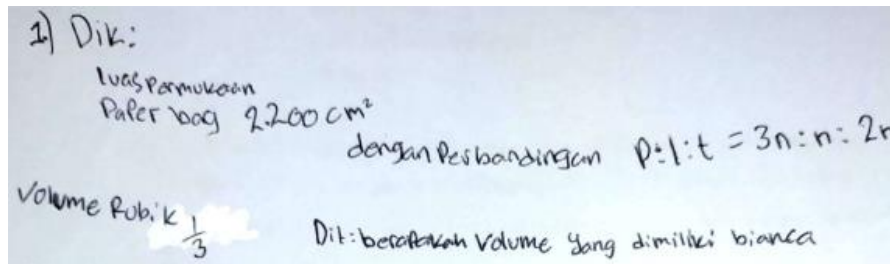 1) Dik:
luas Permukaan
Paper bag 2.200 cm²
dengan Perbandingan P:l:t = 3n:n:2n
Volume Rubik 1/3
Dit: berapakah Volume yang dimiliki bianca